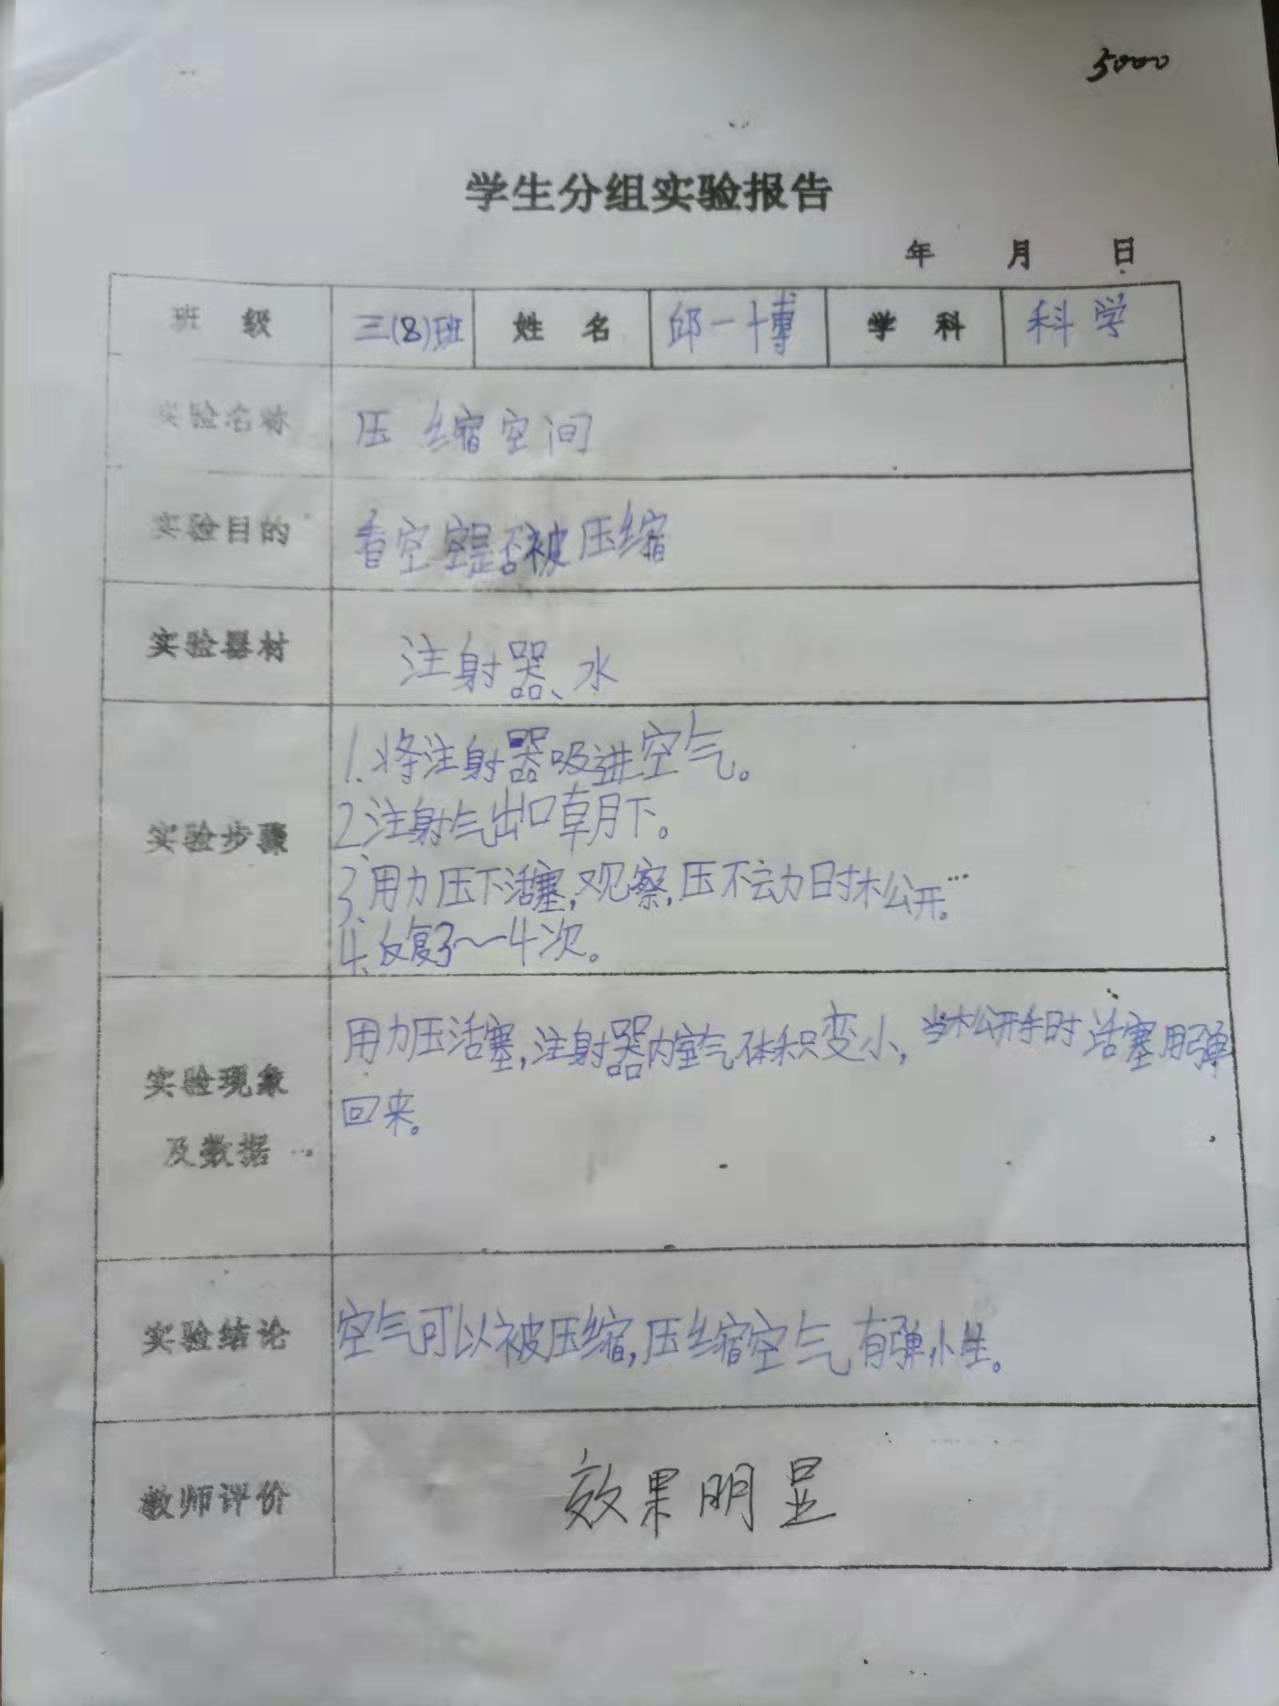 5000
学生分组实验报告
年 月 日
班 级 三(8)班 姓 名 邱一博 学 科 科学
实验名称 压缩空间
实验目的 看空空是否被压缩
实验器材 注射器、水
实验步骤
1.将注射器吸进空气。
2注射气出口朝下。
3.用力压下活塞,观察,压不动时松开。
4.反复3~4次。
实验现象
及数据
用力压活塞,注射器内空气体积变小,当松开手时活塞用弹
回来。
实验结论 空气可以被压缩,压缩空气有弹性。
教师评价 效果明显